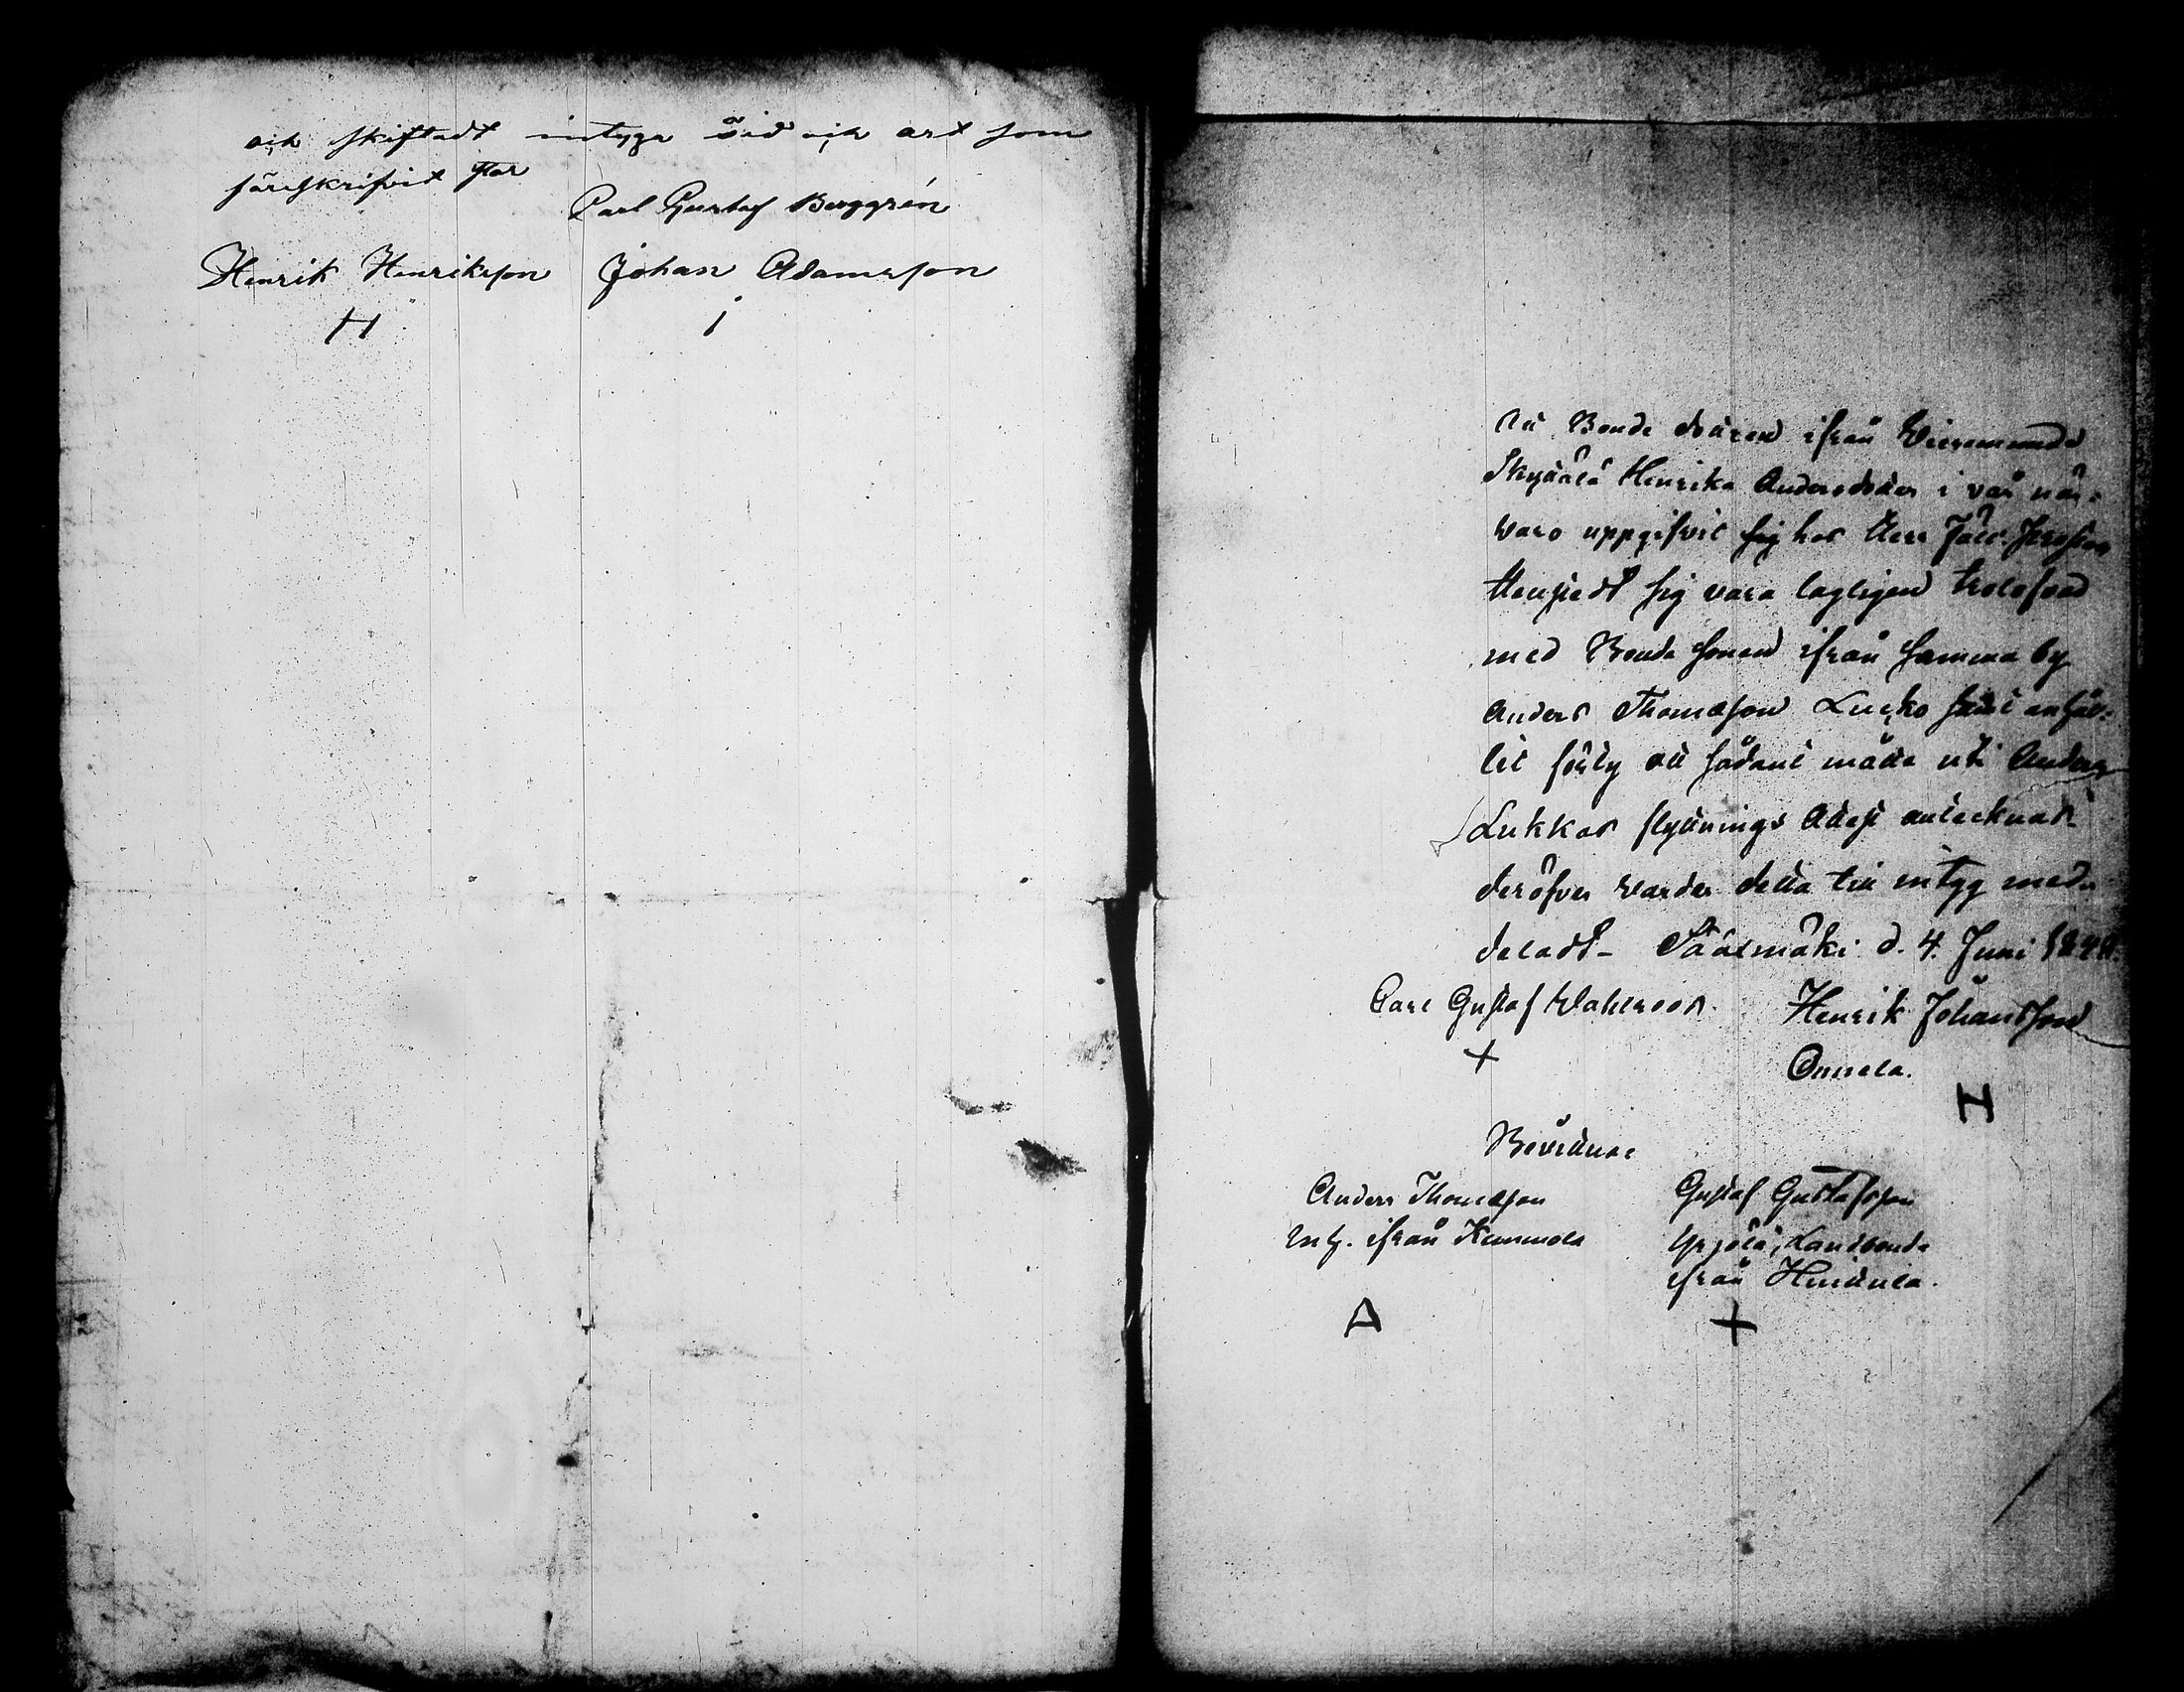 och skiftadt intyga tid och ort som
föreskrifvit står
Carl Gustaf Berggrén
Henrik Henriksson Johan Adamsson
H I
Att Bonde dottren ifrån
Skyttälä Henrika Andersdotter i vår när-
varo uppgifvit sig hos Herr
sig vara lagligen trolofvad
med Bonde sonen ifrån samma by
Anders Thomasson Lucko samt anhål-
lit få att sådant måtte uti Anders
Lukkos flyttnings Attest antecknas
deröfver varder detta till intyg med-
deladt - Sääksmäki d. 4. Juni
Carl Gustaf Wahlroos. Henrik Johansson
+ Onnela.
H
Bevittnar
Anders Thomasson Gustaf Gustafsson
Inh. ifrån Kemmola Yrjölä, Landbonde
ifrån Huittula.
A +